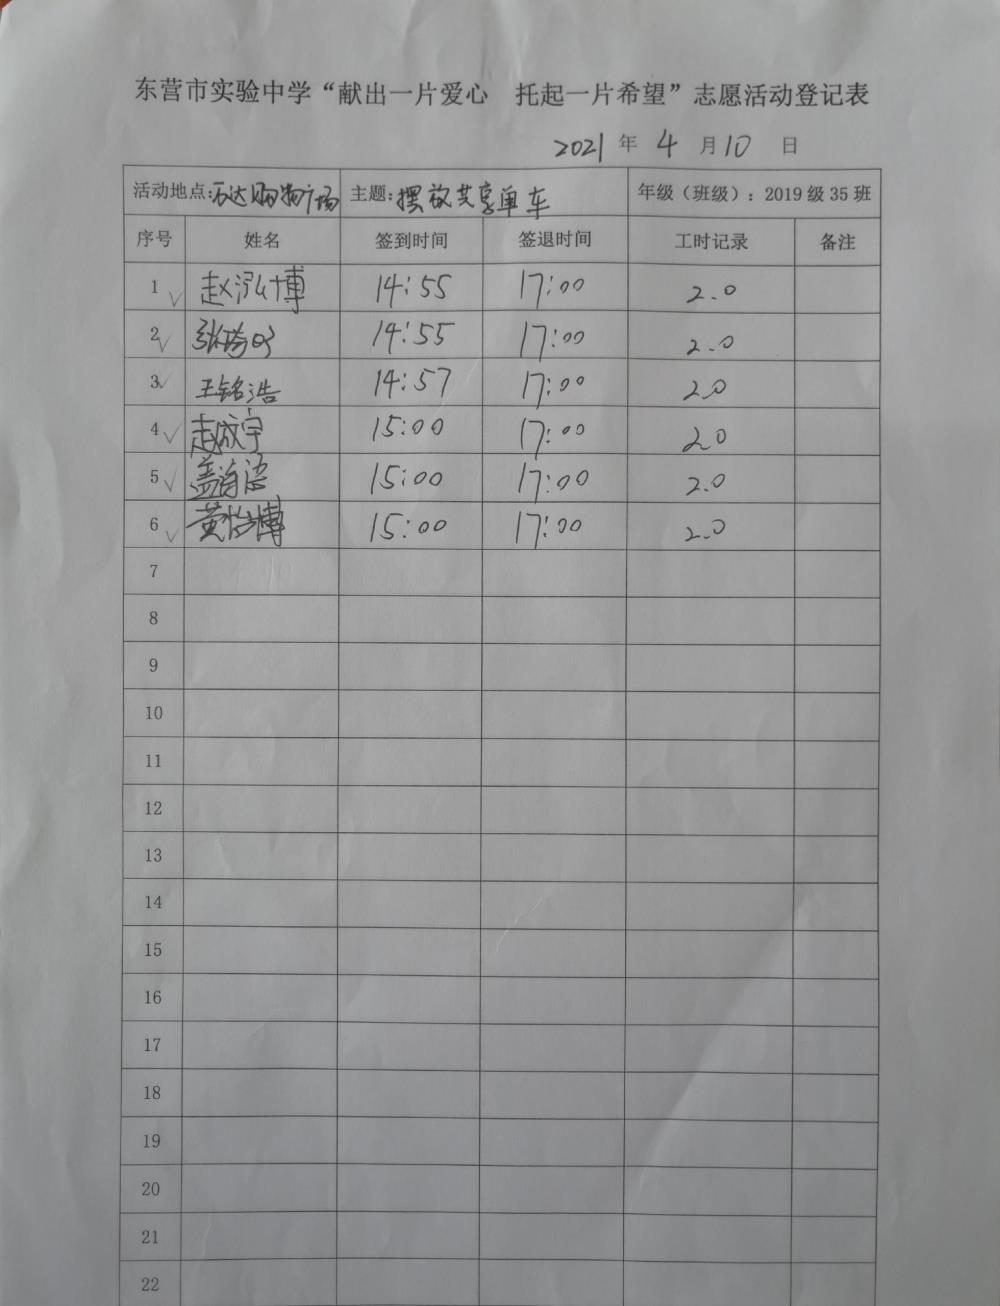 东营市实验中学“献出一片爱心 托起一片希望”志愿活动登记表
2021 年 4 月 10 日
活动地点:万达购物广场 主题:摆放共享单车 年级（班级）：2019 级 35 班
序号 姓名 签到时间 签退时间 工时记录 备注
1 赵泓博 14:55 17:00 2.0
2 14:55 17:00 2.0
3 王铭浩 14:57 17:00 2.0
4 赵成宇 15:00 17:00 2.0
5 15:00 17:00 2.0
6 15:00 17:00 2.0
7
8
9
10
11
12
13
14
15
16
17
18
19
20
21
22